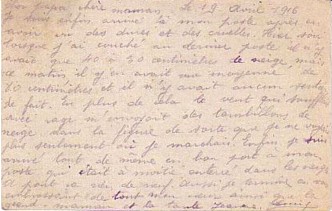 mon papa chère maman, le 12 Avril 1916
je suis enfin arrivé à mon poste après en
avoir eu des dures et des cruelles. Hier soir
lorsque j'ai couché au dernier poste il n'y
avait que 40 à 50 centimètres de neige mais
ce matin il y en avait une moyenne de
70 centimètres et il n'y avait aucun sentier
de fait. En plus de cela le vent qui soufflait
avec rage m'envoyait des tourbillons de
neige dans la figure de sorte que je ne voyais
pas seulement où je marchais. Enfin je suis
arrivé tout de même en bon port à mon
poste qui était à moitié enterré dans la neige
A part ça rien de neuf. Aussi je termine en vous
embrassant de tout mon cœur ainsi que
maman et la tante